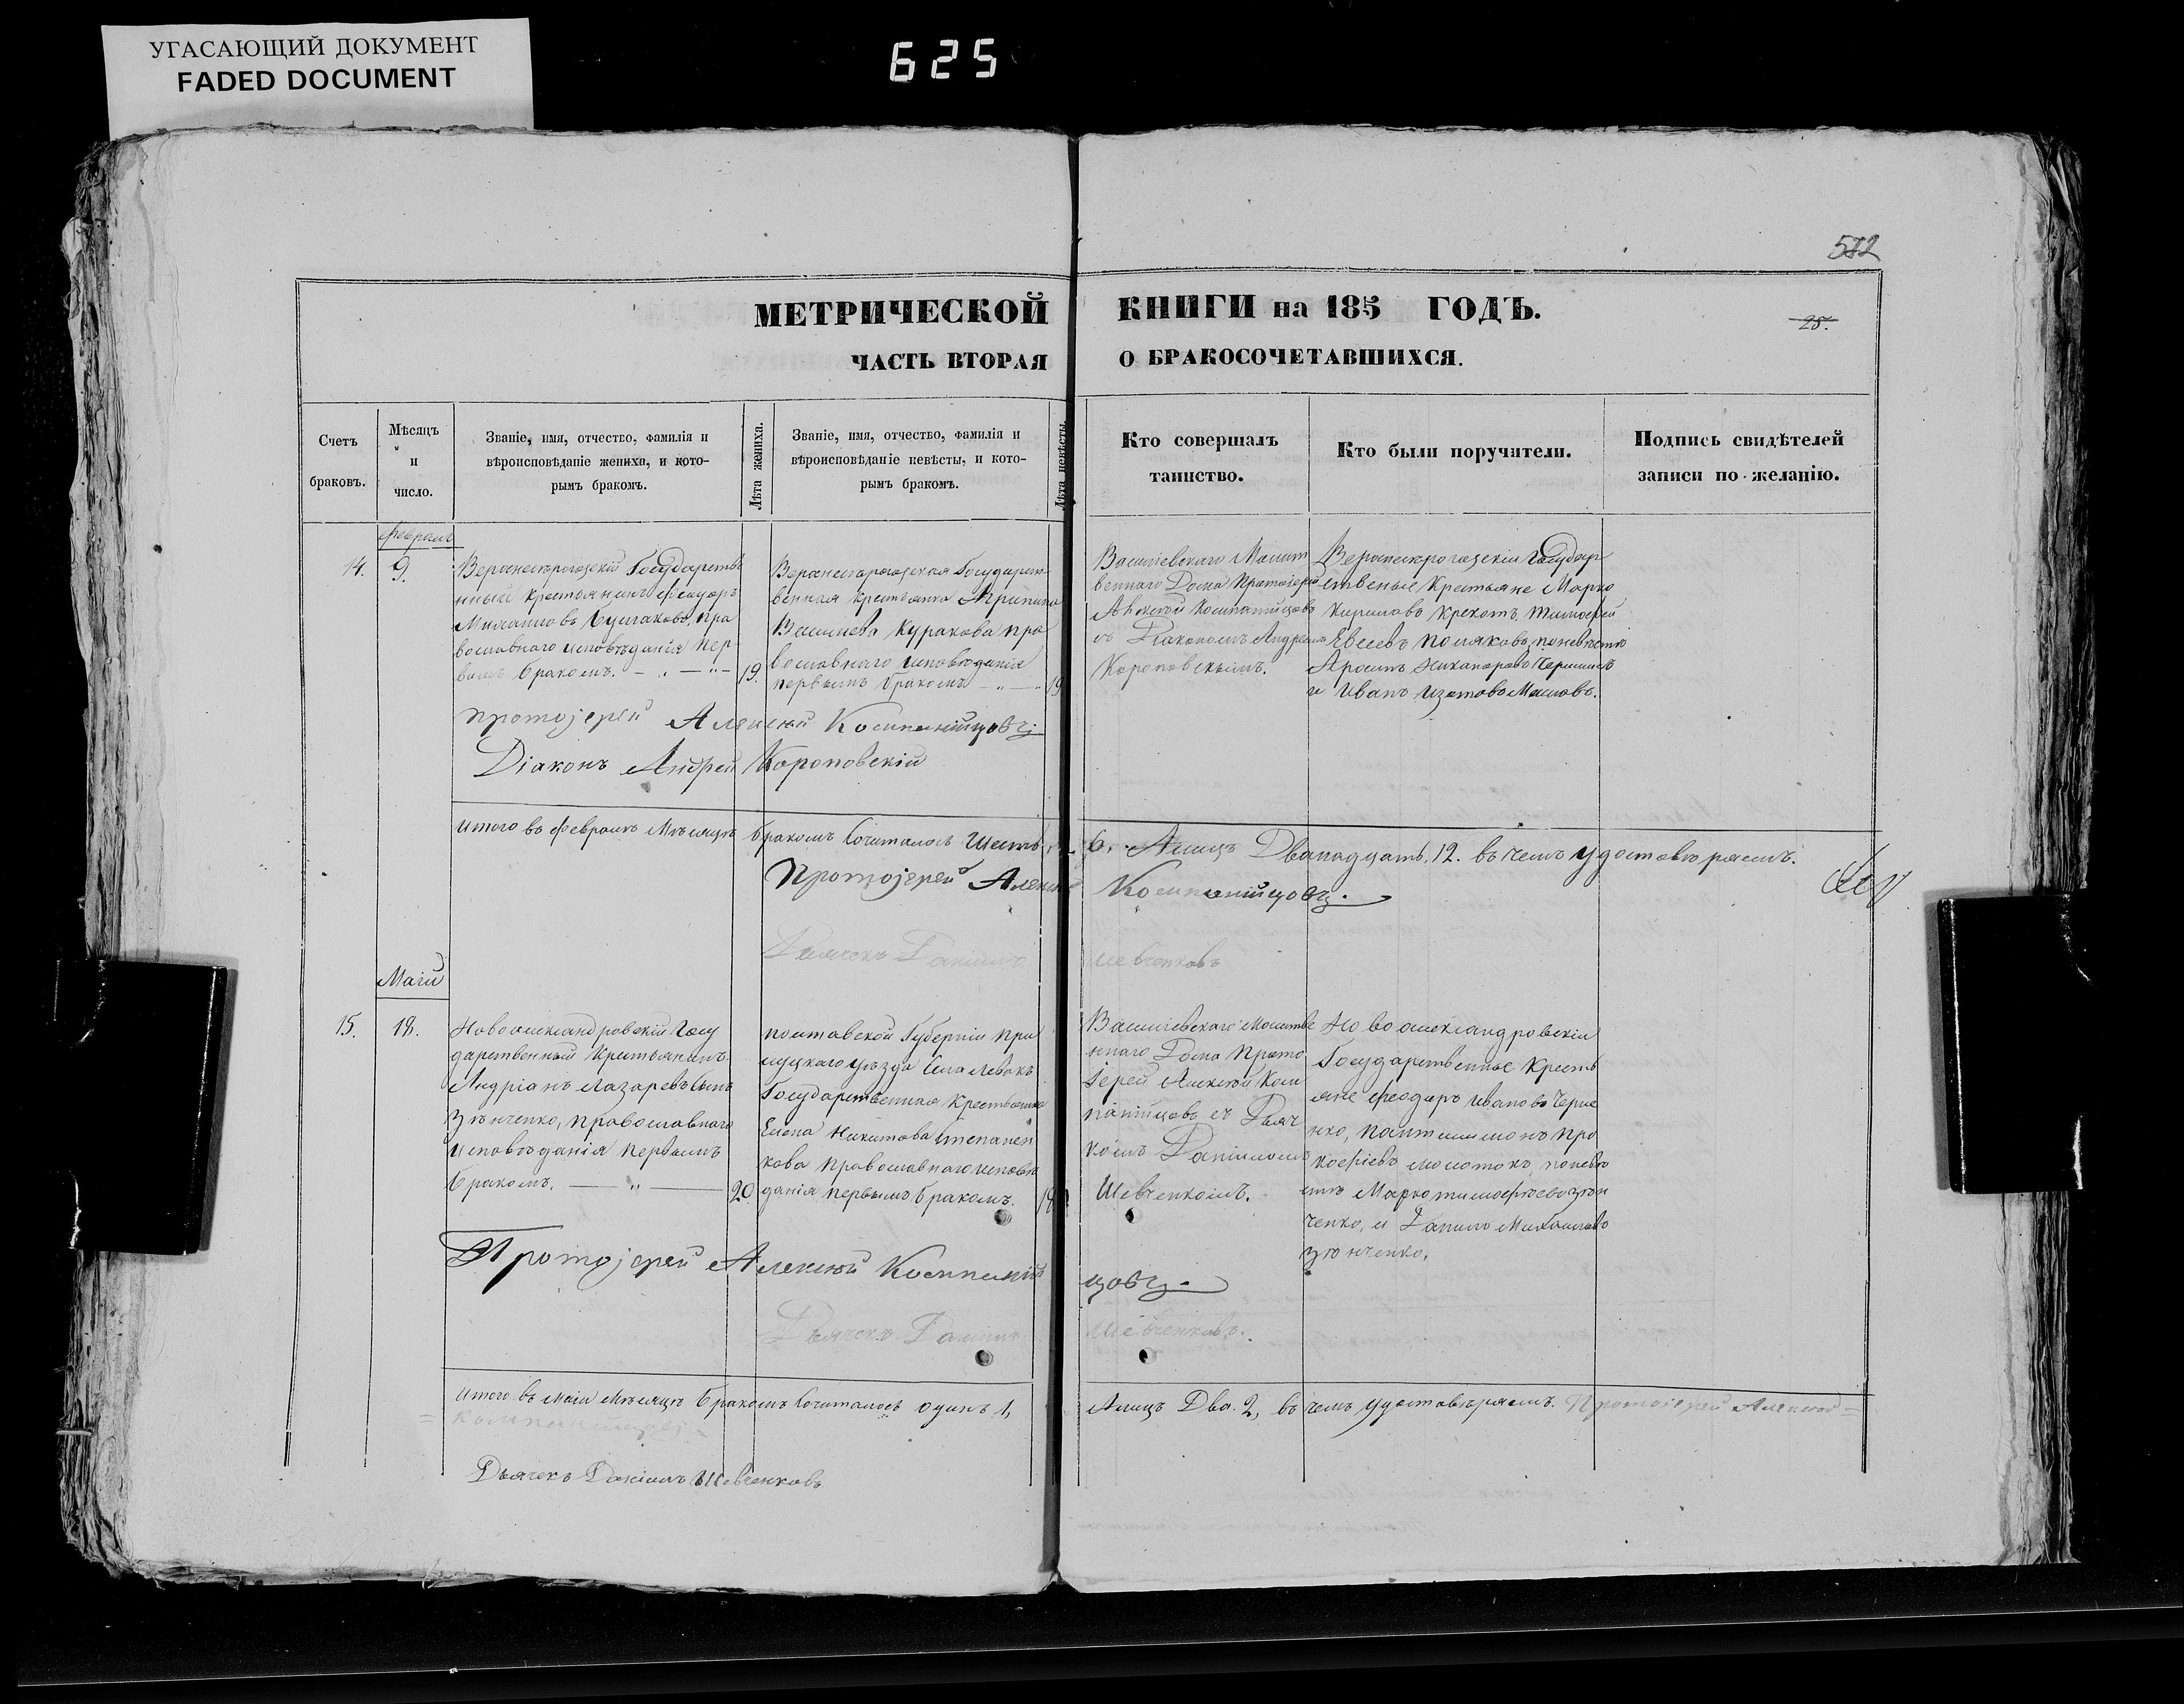 УГАСАЮЩИЙ ДОКУМЕНТ
FADED DOCUMENT
625
582
МЕТРИЧЕСКОЙ КНИГИ на 185 ГОДЪ.
28.
ЧАСТЬ ВТОРАЯ О БРАКОСОЧЕТАВШИХСЯ.
Счетъ
браковъ.
Мѣсяцъ
и
число.
Званіе, имя, отчество, фамилія и
вѣроисповѣданіе жениха, и кото-
рымъ бракомъ.
Лѣта жениха.
Званіе, имя, отчество, фамилія и
вѣроисповѣданіе невѣсты, и кото-
рымъ бракомъ.
Лѣта невѣсты.
Кто совершалъ
таинство.
Кто были поручители.
Подпись свидѣтелей
записи по желанію.
14.
9.
Государстве
нный крестьянинъ Феодоръ
Михаиловъ Булгаковъ, пра
вославнаго исповѣданія пер
вымъ бракомъ.
19.
Государст
венная крестьянка
Васильева Куракова пра
вославнаго исповѣданія
первымъ бракомъ
19
Васильевскаго Молит
веннаго Дома Протоіерей
Алексѣй Компанѣйцовъ
съ Діакономъ Андреемъ
Короповскимъ.
Государ
ственные Крестьяне Марко
Кириловъ Крекотъ, Тимофей
Евсеевъ Поляковъ, поневѣстѣ
и Иванъ Изотовъ Масловъ.
Протоіерей Алексѣй Компанѣйцовъ
Діаконъ Андрей Короповскій
Итого въ Февралѣ Мѣсяцѣ бракомъ Сочиталось Шесть 6. Лицъ Двенадцать, 12. въ чемъ удостовѣряемъ.
Протоіерей Алексѣй Компанѣйцовъ.
Дьячекъ Даніилъ Шевченковъ
Маій
15.
18.
Новоалександровскій Госу
дарственный Крестьянинъ
Андріанъ Лазаревъ сынъ
Зѣнченко, православнаго
исповѣданія первымъ
бракомъ.
20
Полтавской Губерніи При
луцкаго уѣзда Села
Государственная Крестьянка
Елена Никитова Степанен
кова православнаго исповѣ
данія первымъ бракомъ.
18
Васильевскаго Молитве
ннаго Дома Прото
Іерей Алексѣй Ком
панѣйцовъ съ Дьяч
комъ Даніиломъ
Шевченкомъ.
Новоалександровскіи
Государственные Кресть
яне Феодоръ Ивановъ Черне
нко, Пантилимонъ Про
кофіевъ Молотокъ, поневѣ
стѣ Марко Тимофѣевъ Зѣн
ченко, и Данило Михаиловъ
Зѣнченко.
Протоіерей Алексѣй Компанѣй
цовъ.
Дьячекъ Даніилъ Шевченковъ.
Итого въ Маіи Мѣсяцѣ Бракомъ Сочиталось одинъ 1, Лицъ Два. 2, въ чемъ удостовѣряемъ. Протоіерей Алексѣй =
= Компанѣйцовъ
Дьячекъ Даніилъ Шевченковъ